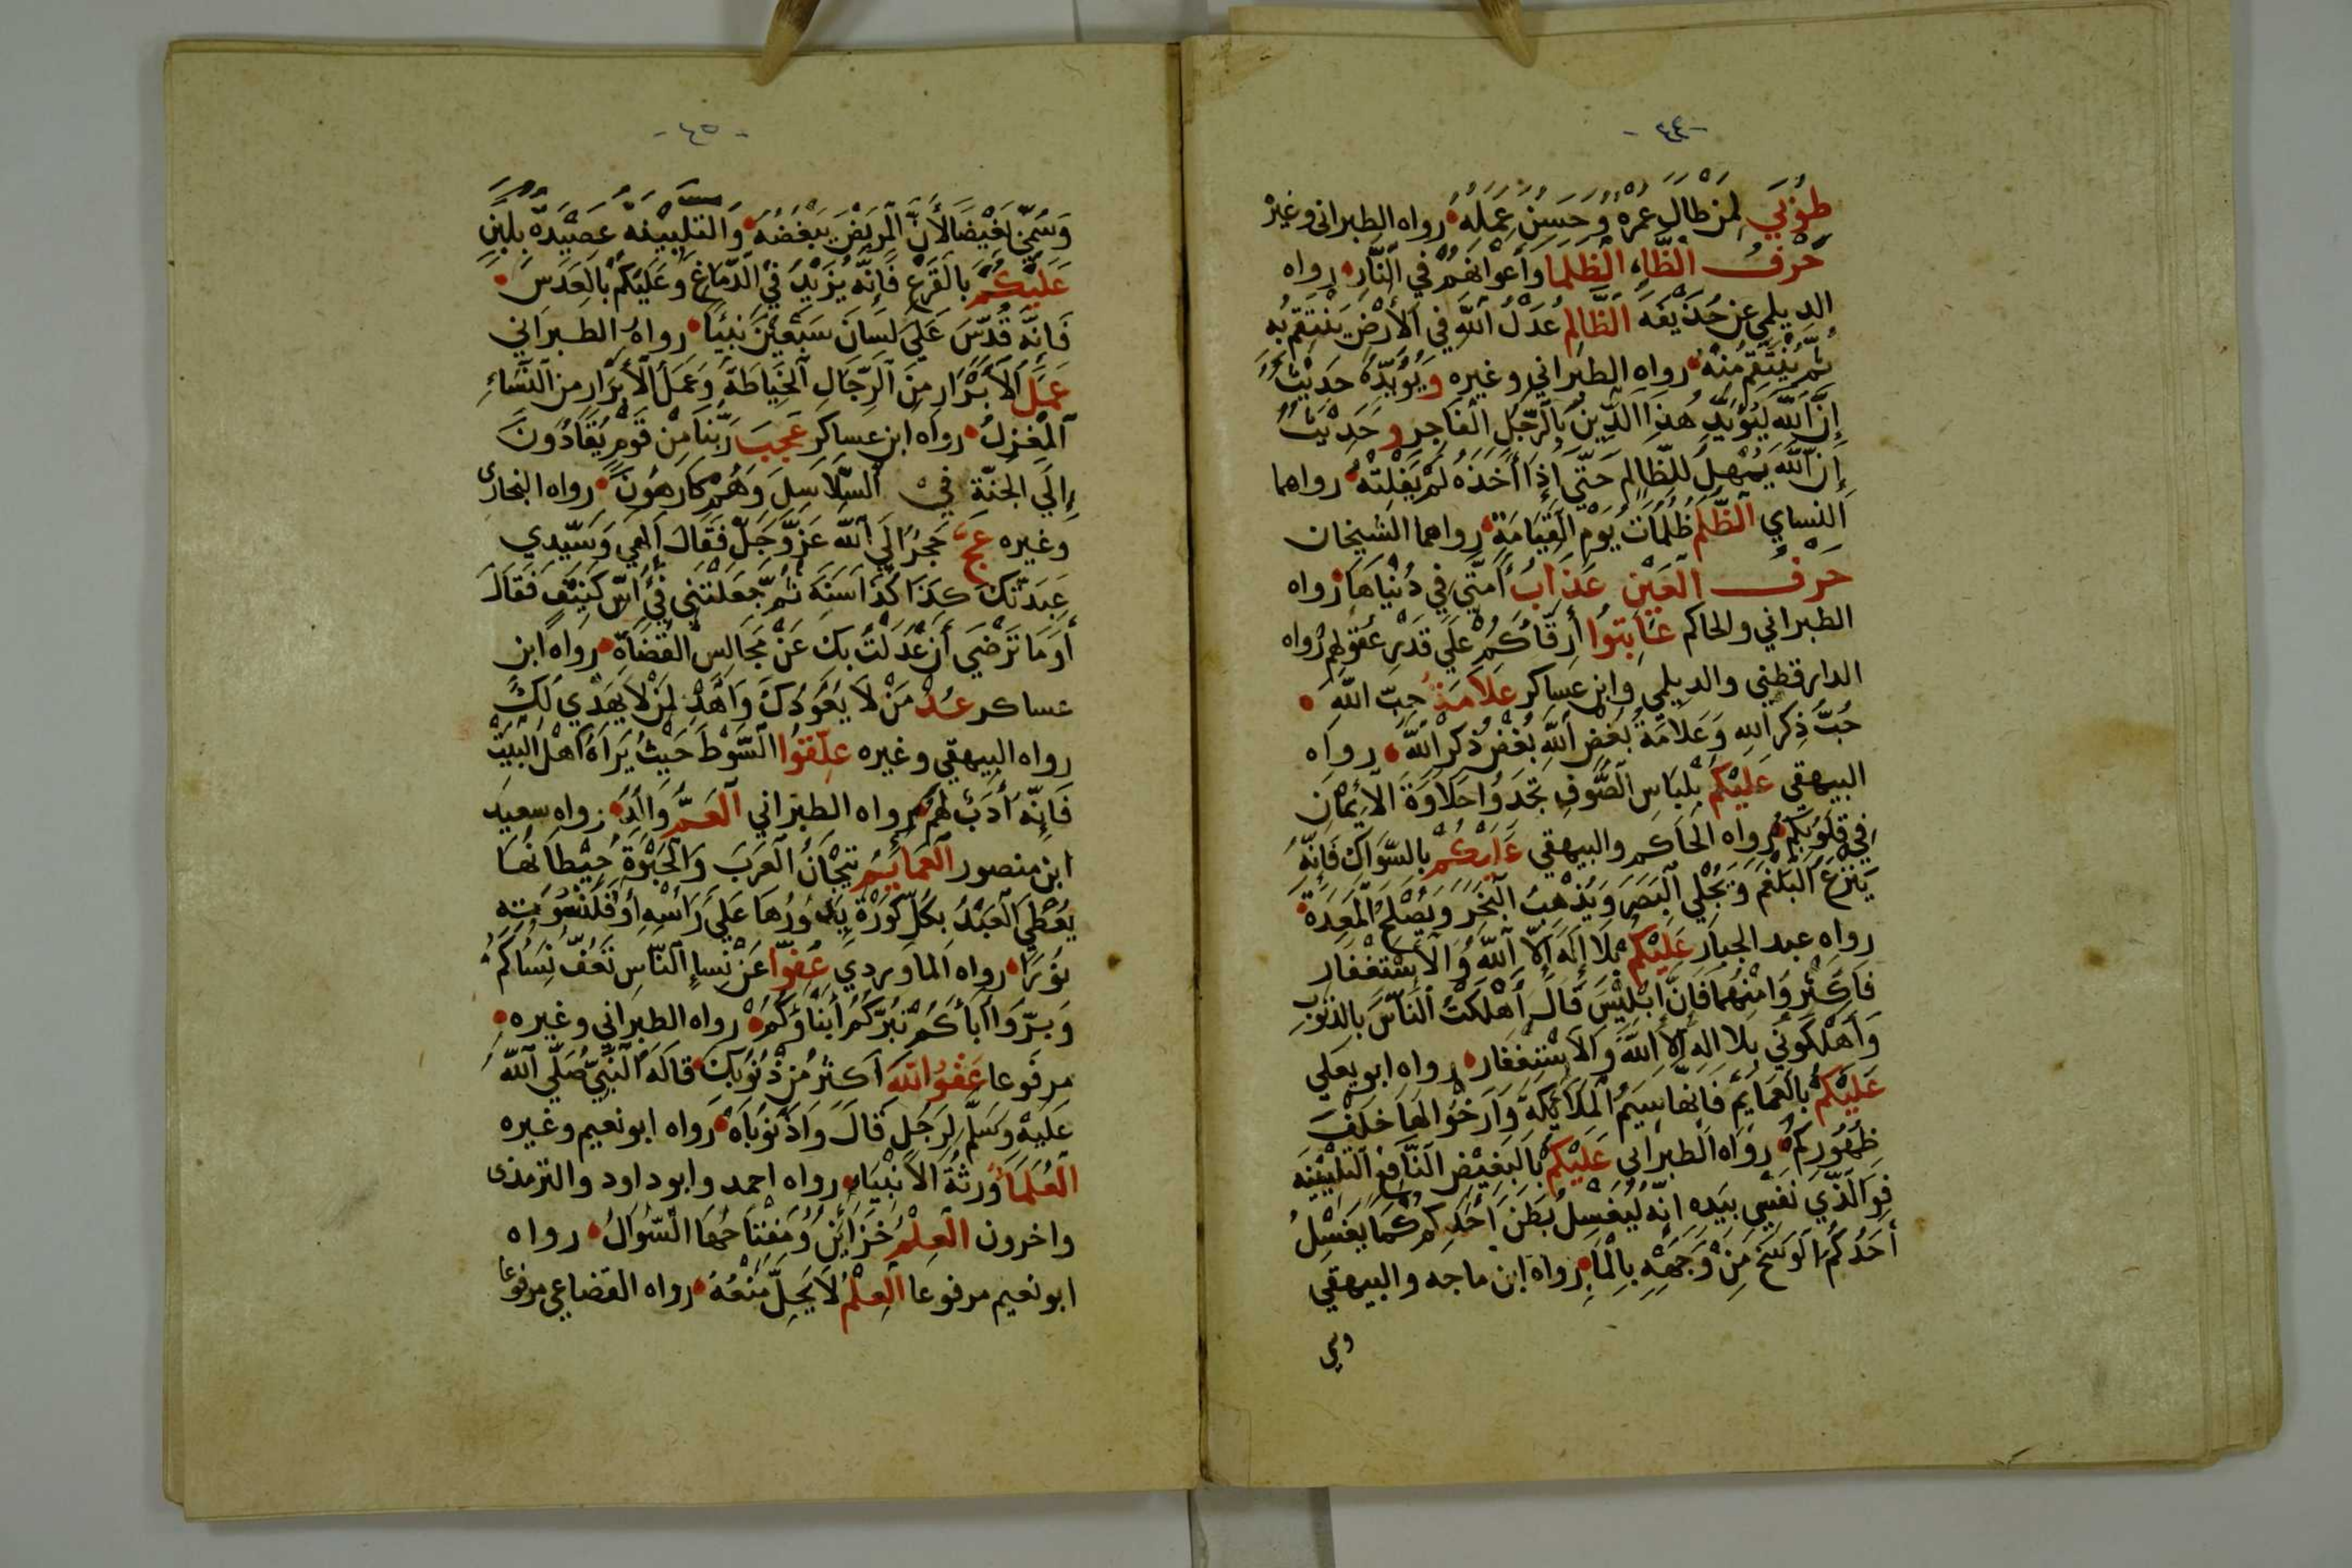 -٤٤-
طُوْبَي لِمَنْ طَالَ عُمُرُهُ وَحَسُنَ عَمَلُهُ رواه الطبراني وغيره
حَرْفُ الظَّاءِ الظلما وَأَعْوَانُهُمْ فِي النَّارِ رواه
الديلمي عن حُذَيْفَه الظَّالِمُ عَدْلُ اللَّهِ فِي الْأَرْضِ يَنْتَقِمُ بِهِ
ثُمَّ يَنْتَقِمُ مِنْهُ رواه الطبراني وغيره وَيُؤَيِّدُهُ حَدِيْثُ
إِنَّ اللَّهَ لَيُؤَيِّدُ هَذَا الدِّينَ بِالرَّجُلِ الْفَاجِرِ وَحَدِيْثُ
إِنَّ اللَّهَ يُمْهِلُ لِلظَّالِمِ حَتَّي إِذَا أَخَذَهُ لَمْ يَفْلِتْهُ رواهما
النساي الظُّلْمُ ظُلُمَاتٌ يَوْمَ الْقِيَامَةِ رواهما الشيخان
حَرْفُ الْعَيْنِ عَذَابُ أُمَّتِي فِي دُنْيَاهَا رواه
الطبراني والحاكم عَاتِبُوا أَرِقَّاكُمْ عَلَي قَدْرِ عُقُولِهِمْ رواه
الدارقطني والديلمي وابن عساكر عَلَامَةُ حُبِّ اللَّهِ
حُبُّ ذِكْرِ اللَّهِ وَعَلَامَةُ بُغْضِ اللَّهِ بُغْضُ ذِكْرِ اللَّهِ رواه
البيهقي عَلَيْكُمْ بِلِبَاسِ الصُّوفِ تَجِدُوا حَلَاوَةَ الْإِيْمَانِ
فِي قُلُوبِكُمْ رواه الحاكم والبيهقي عَلَيْكُمْ بِالسِّوَاكِ فَإِنَّهُ
يَنْزِعُ الْبَلْغَمَ وَيُجْلِي الْبَصَرَ وَيُذْهِبُ الْبَخَرَ وَيُصْلِحُ الْمَعِدَةَ
رواه عبد الجبار عَلَيْكُمْ بِلَا إِلَهَ إِلَّا اللَّهُ وَالْإِسْتِغْفَارِ
فَأَكْثِرُوا مِنْهُمَا فَإِنَّ إِبْلِيْسَ قَالَ أَهْلَكْتُ النَّاسَ بِالذُّنُوبِ
وَأَهْلَكُونِي بِلا اله إِلَّا اللَّهُ وَالْاسْتِغْفَارِ رواه ابو يعلي
عَلَيْكُمْ بِالْعَمَايِمِ فَإِنَّهَا سِيَمُ الْمَلَائِكَةِ وَأَرْخُوا لَهَا خَلْفَ
ظُهُورِكُمْ رواه الطبراني عَلَيْكُمْ بِالْبَغِيْضِ النَّافِعِ التَّلْبِيْنَه
فَوَالَّذِي نَفْسِي بِيَدِهِ انه لَيَغْسِلُ بَطْنَ أَحَدِكُمْ كَمَا يَغْسِلُ
أَحَدُكُمُ الْوَسَخَ مِنْ وَجْهِهِ بِالْمَاءِ رواه ابن ماجه والبيهقي
وسمي
-٤٥-
وَسُمِّيَ بَغِيْضًا لِأَنَّ الْمَرِيضَ يَبْغَضُهُ وَالتَّلْبِيْنَه عَصِيْدَةٌ بِلَبَنٍ
عَلَيْكُمْ بِالْقَرْعِ فَإِنَّهُ يَزِيْدُ فِي الدِّمَاغِ وَعَلَيْكُمْ بِالْعَدَسِ
فَإِنَّهُ قُدِّسَ عَلَي لِسَانِ سَبْعِيْنَ نَبِيًّا رواه الطبراني
عَمَلُ الْأَبْرَارِ مِنَ الرِّجَالِ الْخِيَاطَةُ وَعَمَلُ الْأَبْرَارِ مِنَ النِّسَاءِ
الْمِغْزَلُ رواه ابن عساكر عَجِبَ رَبُّنَا مِنْ قَوْمٍ يُقَادُونَ
إِلَي الْجَنَّةِ فِي السَّلَاسِلِ وَهُمْ كَارِهُونَ رواه البخاري
وغيره عَجَّ حَجَرٌ إِلَي اللَّهِ عَزَّ وَجَلَّ فَقَالَ إِلَهِي وَسَيِّدِي
عَبَدْتُكَ كَذَا كَذَا سَنَةً ثُمَّ جَعَلْتَنِي فِي أُسِّ كَنِيْفٍ فَقَالَ
أَوَمَا تَرْضَي أَنْ عَدَلْتُ بِكَ عَنْ مَجَالِسِ الْقُضَاةِ رواه ابن
عساكر عُدْ مَنْ لَا يَعُودُكَ وَاهْدِ لِمَنْ لَا يَهْدِي لَكَ
رواه البيهقي وغيره عَلِّقُوا السَّوْطَ حَيْثُ يَرَاهُ أَهْلُ الْبَيْتِ
فَإِنَّهُ أَدَبٌ لَهُمْ رواه الطبراني الْعَمُّ وَالِدٌ رواه سعيد
ابن منصور الْعَمَايِمُ تِيْجَانُ الْعَرَبِ وَالْحَبْوَةُ حِيْطَانُهَا
يُعْطَي الْعَبْدُ بِكُلِّ كَوْرَةٍ يُدَوِّرُهَا عَلَي رَأْسِهِ أَوْ قَلَنْسُوَتِهِ
نُورًا رواه الماوردي عِفُّوا عَنْ نِسَاءِ النَّاسِ تَعِفُّ نِسَاكُمْ
وَبِرُّوا آبَأَكُمْ تَبُرُّكُمْ أَبْنَاؤُكُمْ رواه الطبراني وغيره
مرفوعا عَفْوُ اللَّهِ أَكْثَرُ مِنْ ذُنُوبِكَ قَالَهُ النَّبِيُّ صَلَّي اللَّهُ
عَلَيْهِ وَسَلَّمَ لِرَجُلٍ قَالَ وَاذُنُوبَاهُ رواه ابو نعيم وغيره
الْعُلَمَاءُ وَرَثَةُ الْأَنْبِيَاءِ رواه احمد وابو داود والترمذي
واخرون الْعِلْمُ خَزَايِنُ وَمِفْتَاحُهَا السُّوَالُ رواه
ابو نعيم مرفوعا الْعِلْمُ لَا يَحِلُّ مَنْعُهُ رواه القضاعي مرفوعا